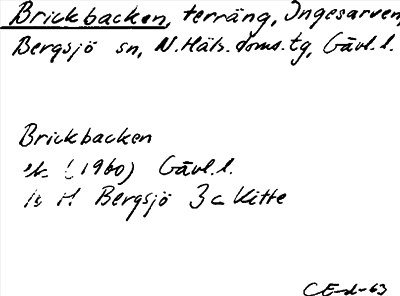 Brickbacken, terräng, Ingesarven,
Bergsjö sn, N. Häls. doms. tg, Gävl. l.
Brickbacken
ek (1960) Gävl. l.
16 H Bergsjö 3c Kitte
CE-d-63